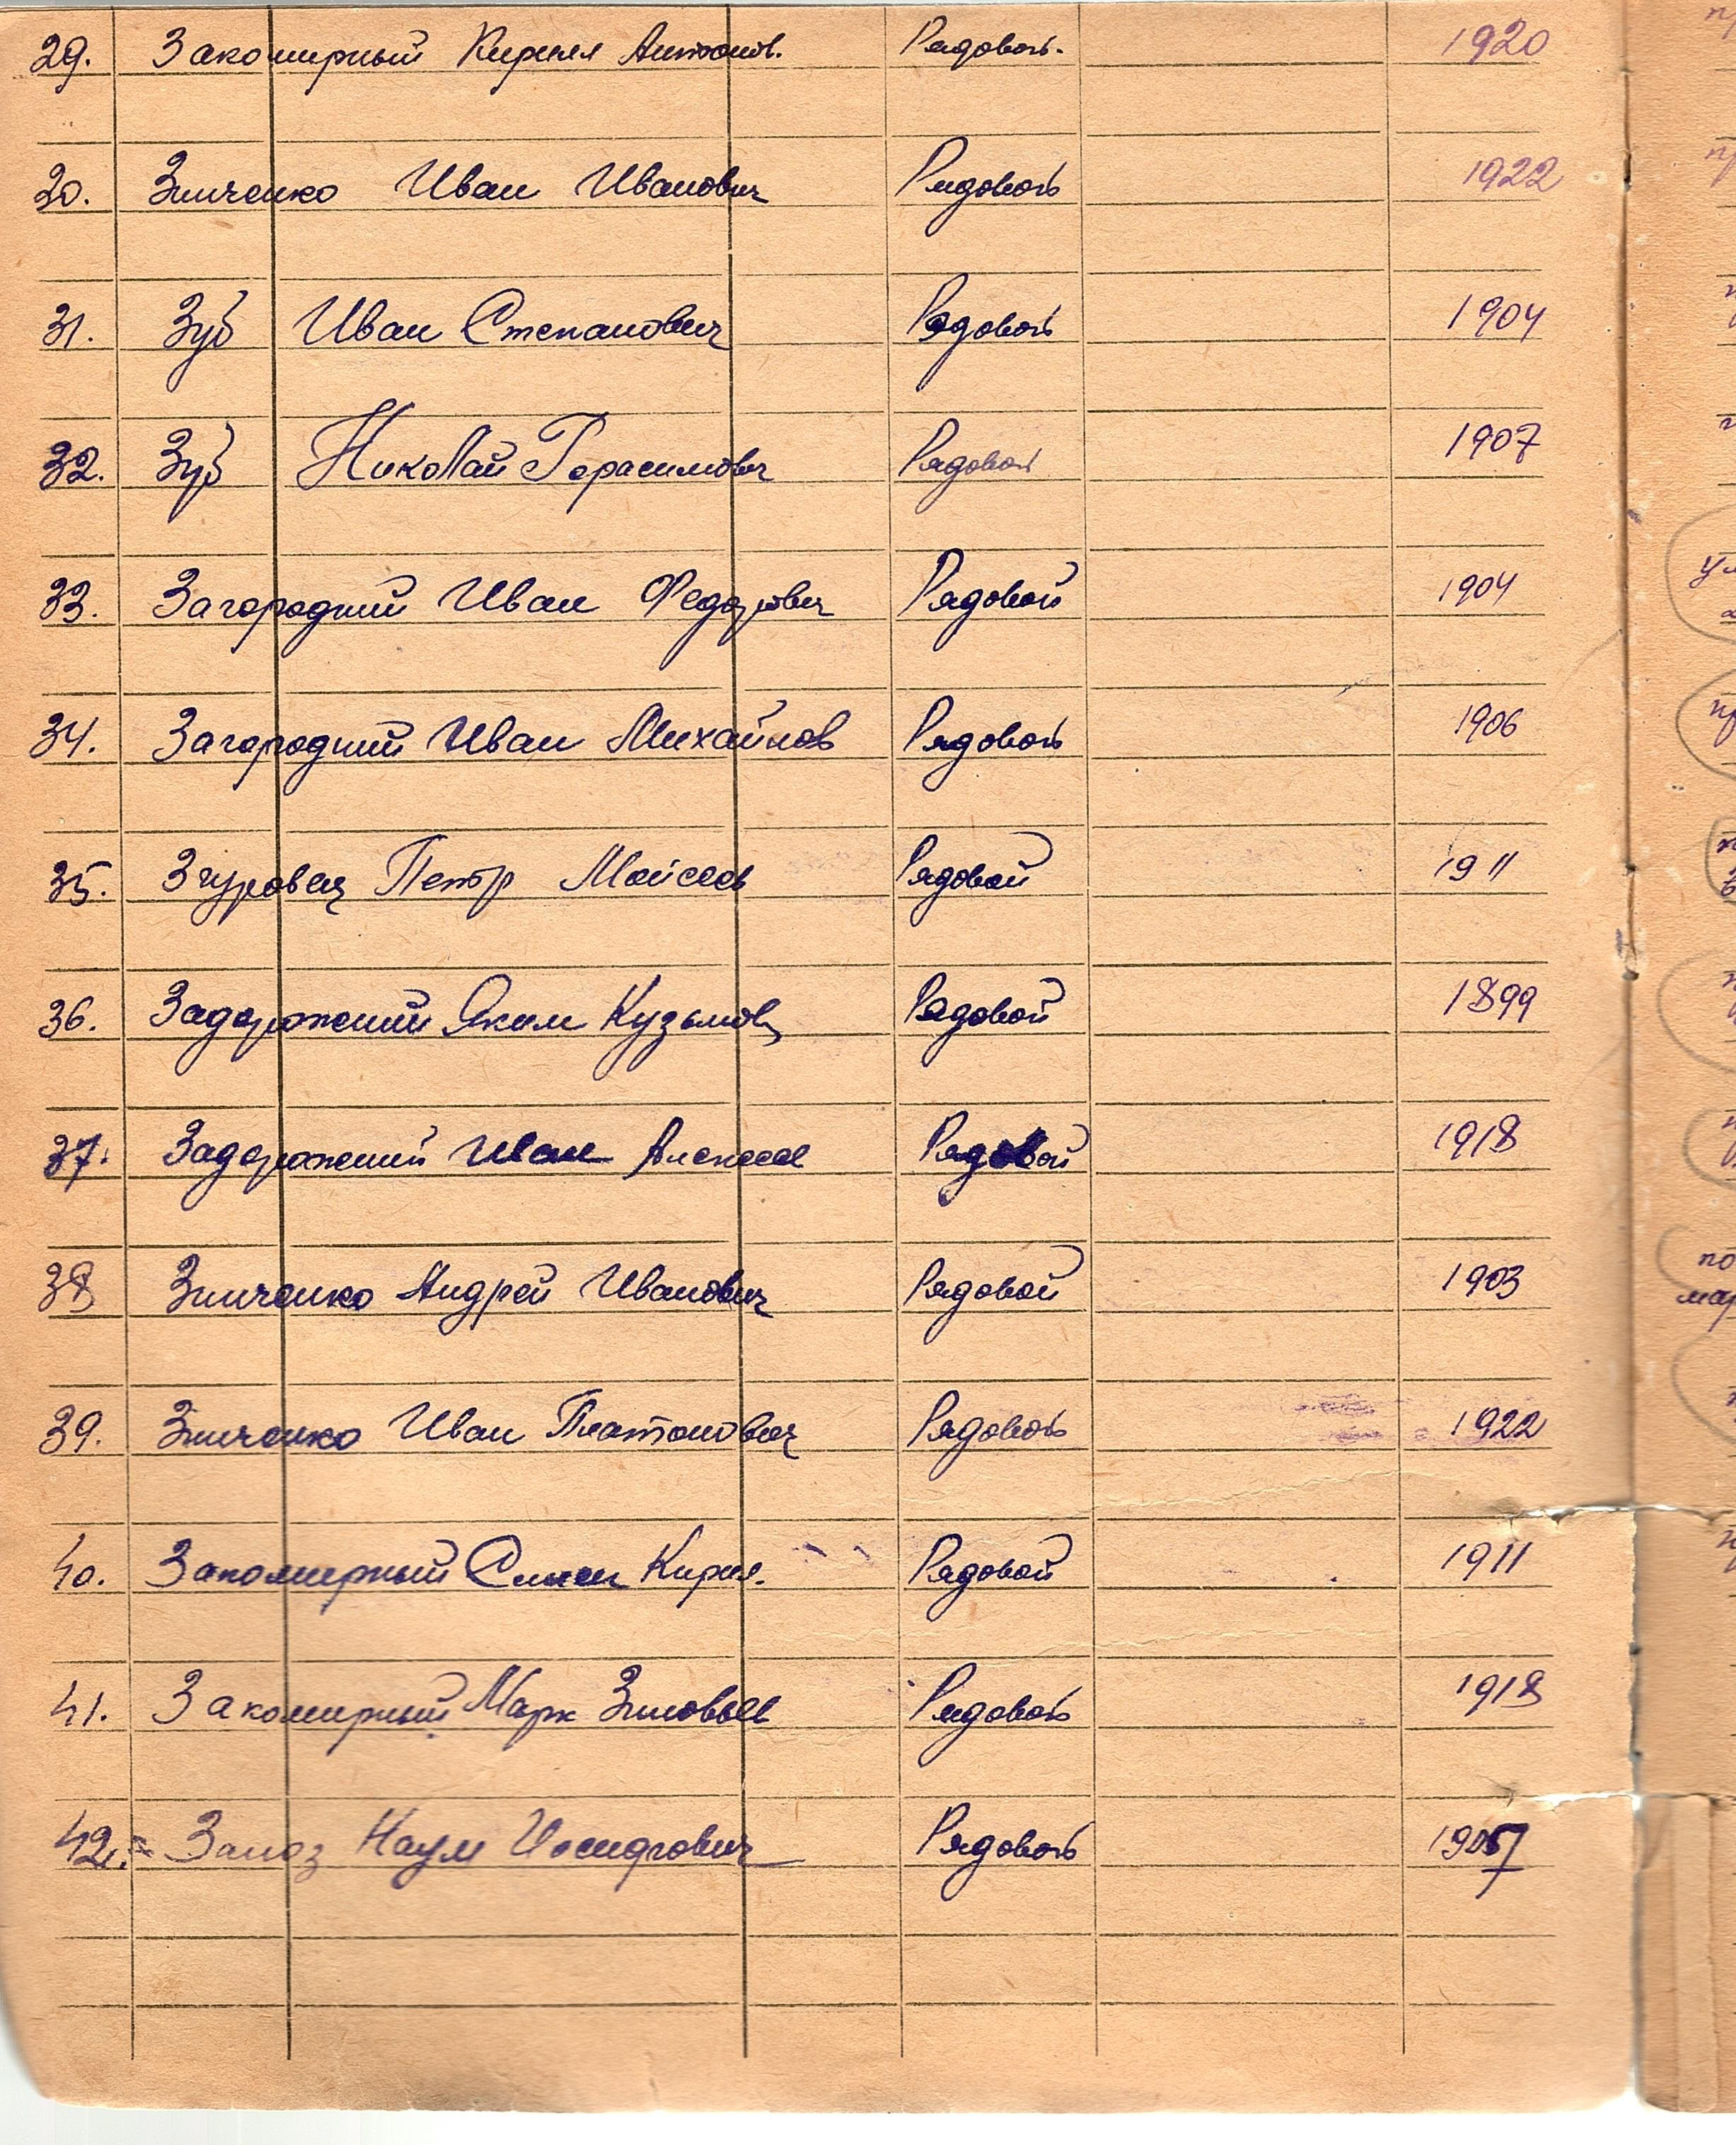 29. Закомирный Кирилл Антонов. Рядовой. 1920
30. Зинченко Иван Иванович Рядовой 1922
31. Зуб Иван Степанович Рядовой 1904
32. Зуб Николай Герасимович Рядовой 1907
33. Загородний Иван Федорович Рядовой 1904
34. Загородний Иван Михайлов Рядовой 1906
35. Згуровец Петр Моисеев Рядовой 1911
36. Задорожений Яким Кузьмов Рядовой 1899
37. Задорожений Иван Алексеев Рядовой 1918
38 Зинченко Андрей Иванович Рядовой 1903
39. Зинченко Иван Платонович Рядовой 1922
40. Закомирный Семен Кирил. Рядовой 1911
41. Закомирный Марк Зиновьев Рядовой 1918
42. Наум Иосифович Рядовой